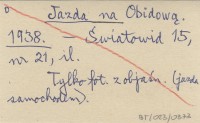 Jazda na Obidową.
1938. – Światowid 15,
nr 21, il.
Tylko fot. z objaśn. (jazda
samochodem).
BT/023/0232